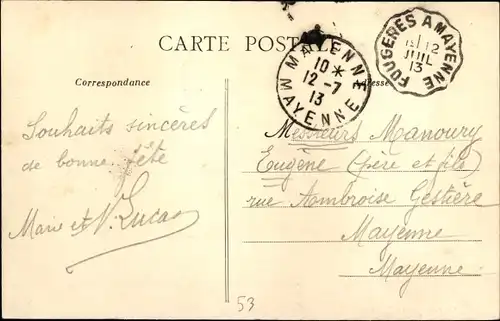 CARTE POSTALE
Correspondance
Adresse
MAYENNE
10 *
12 - 7
13
MAYENNE
FOUGERES A MAYENNE
12
JUIL
13
Souhaits sincères
de bonne fête
Marie et V. Lucas
Messieurs Manoury
Eugène (père et fils)
rue Ambroise Gestière
Mayenne
Mayenne
53